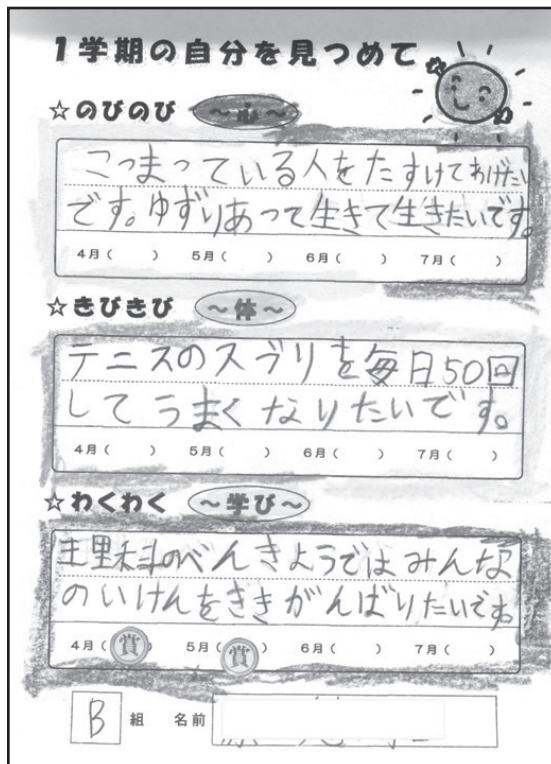 1学期の自分を見つめて
☆のびのび ~心~
こっまっている人をたすけてあげたい
です。ゆずりあって生きて生きたいです。
4月( ) 5月( ) 6月( ) 7月( )
☆きびきび ~体~
テニスのスブリを毎日50回
してうまくなりたいです。
4月( ) 5月( ) 6月( ) 7月( )
☆わくわく ~学び~
理科のべんきょうではみんな
のいけんをききがんばりたいです。
4月(賞) 5月(賞) 6月( ) 7月( )
B 組 名前